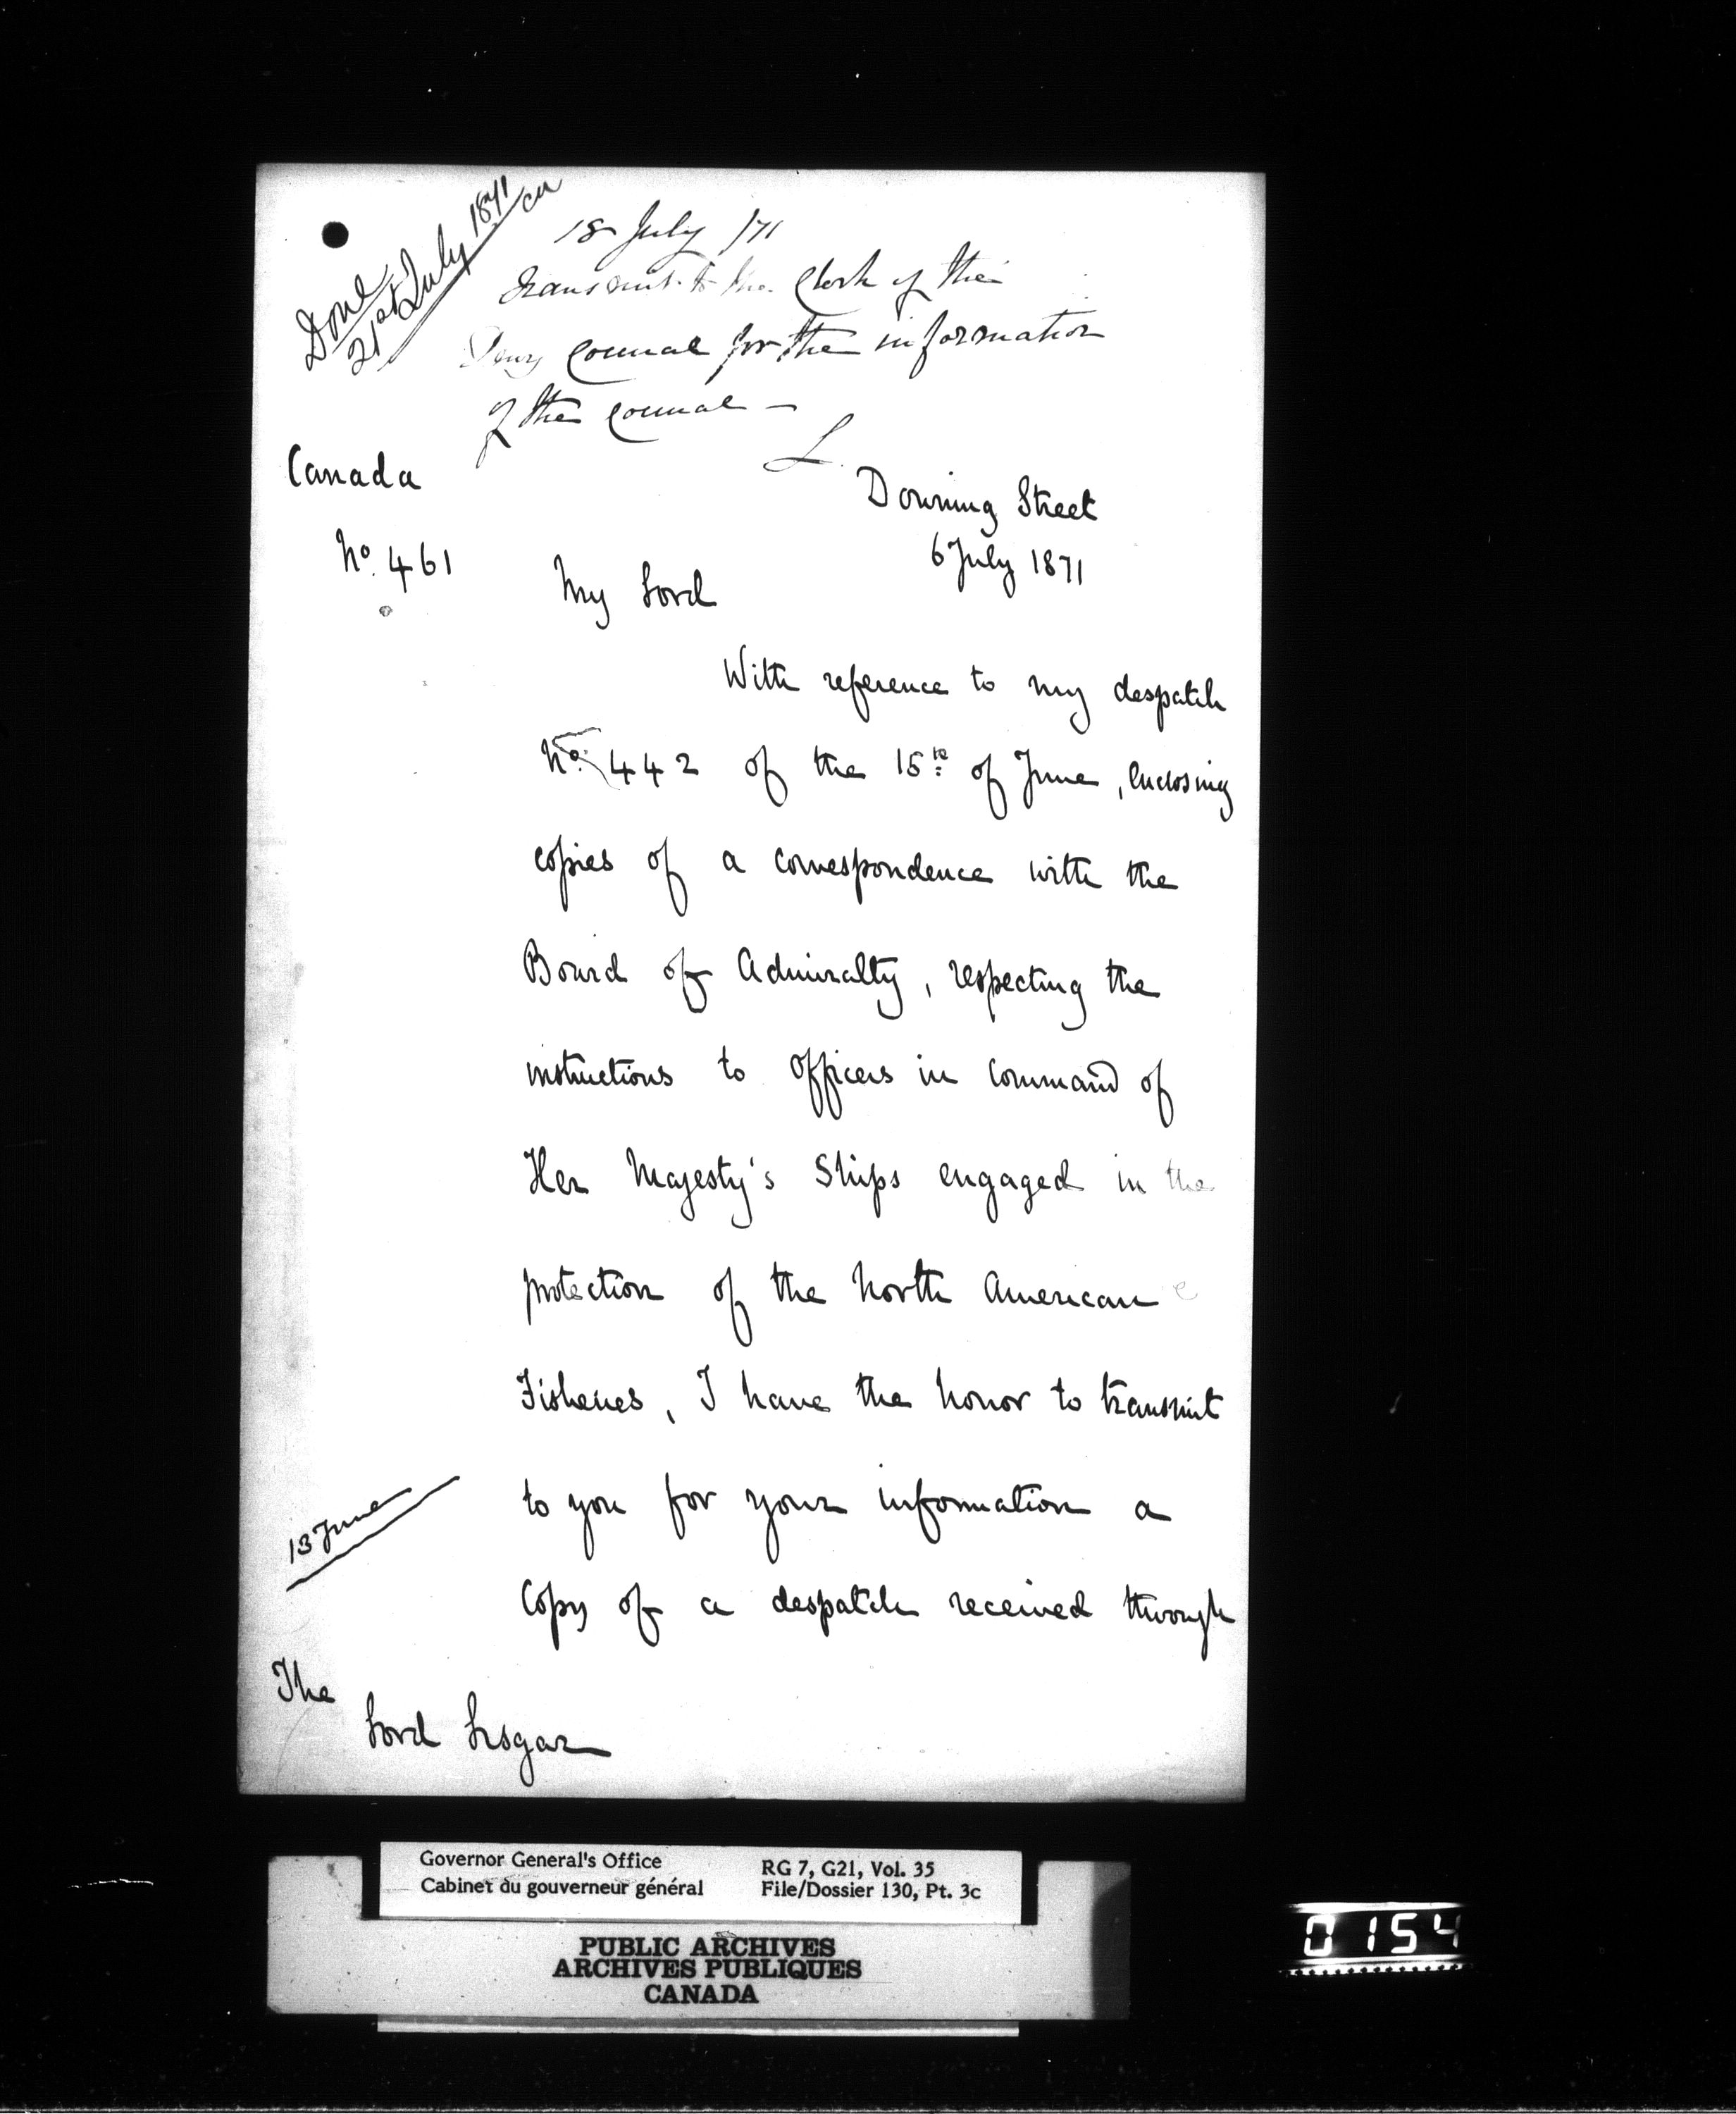 Done
21st July 1871
18 July /71
Transmit to the Clerk of the
Privy Council for the information
of the Council —
L.
Canada
No. 461
Downing Street
6 July 1871
My Lord
With reference to my despatch
No. 442 of the 15th of June, enclosing
copies of a correspondence with the
Board of Admiralty, respecting the
instructions to Officers in Command of
Her Majesty's Ships engaged in the
protection of the North American
Fisheries, I have the honor to transmit
to you for your information a
13 June
Copy of a despatch received through
The
Lord Lisgar
Governor General's Office
Cabinet du gouverneur général
RG 7, G21, Vol. 35
File/Dossier 130, Pt. 3c
PUBLIC ARCHIVES
ARCHIVES PUBLIQUES
CANADA
0154